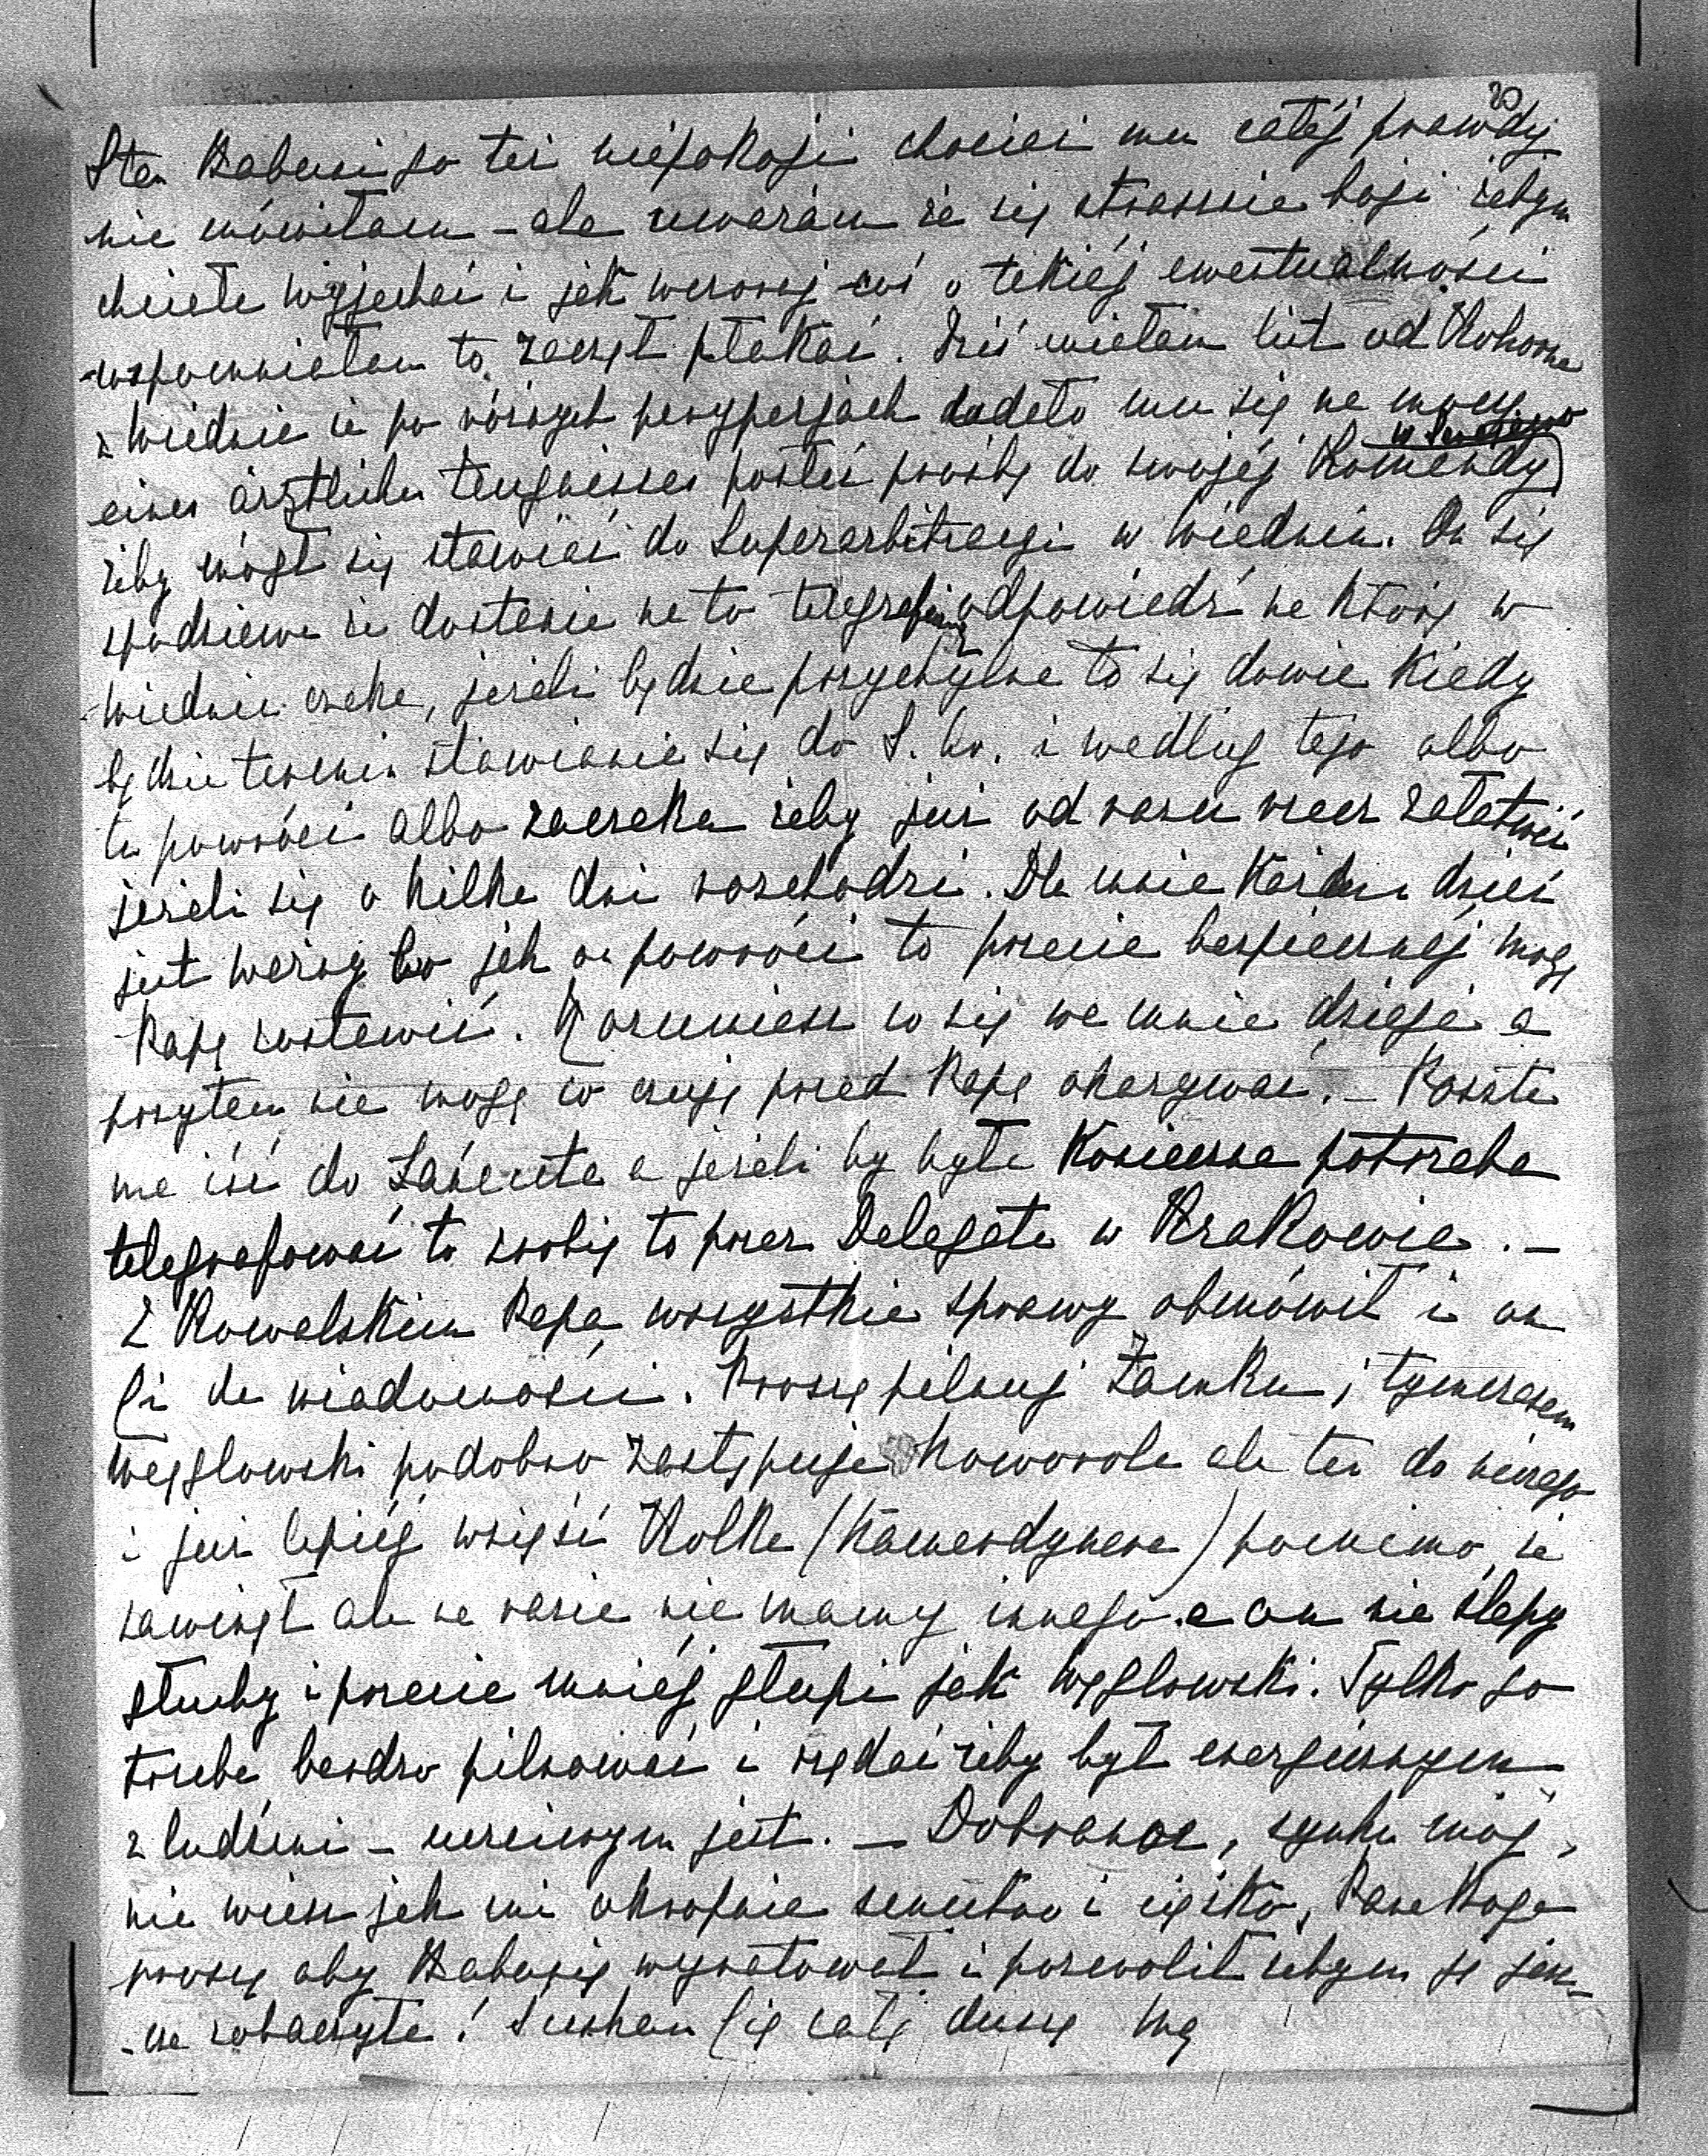 20
Stan Babusi go też niepokoji chociaż mu całéj prawdy
nie mówiłam – ale uważam że się strasznie boji żebym
chciała wyjechać i jak wczoraj coś o takiéj ewentualności
wspomniałam to zaczął płakać. Dziś miałam list od
z Wiednia że po różnych perypetjach udało mu się na mocy
eines ärztlichen Zeugnisses posłać prośbę do swojéj Komendy
żeby mógł się stawiać do Superarbitracyi w Wiedniu. On się
spodziewa że dostanie na to telegraficzną odpowiedź na którą w
Wiedniu czeka, jeżeli będzie przychylna to się dowie kiedy
będzie termin stawiania się do S. Ko. i według tego albo
tu powróci albo zaczeka żeby już od razu rzecz załatwić
jeżeli się o kilka dni rozchodzi. Dla mnie każden dzień
jest ważny bo jak on powróci to przecie bezpiecznéj mogę
Papę zostawić. Rozumiesz co się we mnie dzieje a
przytem nie mogę co czuję przed Papą okazywać. – Poczta
ma iść do Łańcuta a jeżeli by była konieczna potrzeba
telegrafować to zrobię to przez Delegata w Krakowie. –
Z Kowalskim Papa wszystkie sprawy obmówił i on
Ci da wiadomości. Proszę pilnuj Zamku, tymczasem
Węglowski podobno zastępuje Nawovola ale ten do niczego
i już lepiéj wziąść Kolkę (Kamerdynera) pomimo że
zawinął ale na razie nie mamy innego a on nie ślepy
głuchy i przecie mniéj głupi jak Węglowski. Tylko go
trzeba bardzo pilnować i żądać żeby był energicznym
z ludźmi – uczciwym jest. – Dobranoc, synku mój,
nie wiesz jak mi okropnie smutno i ciężko, Pana Boga
proszę aby Babusię wyratował i pozwolił żebym ją jesz-
-cze zobaczyła! Ściskam Cię całą duszą Ma